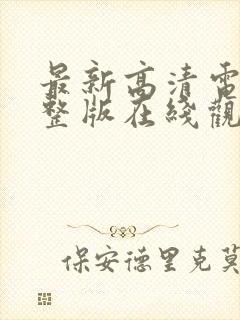 最新高清電
整版在綫觀
保安德里克莫